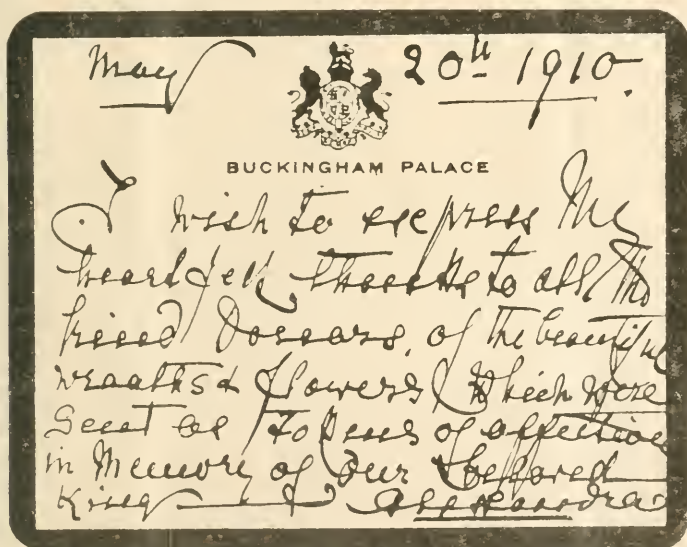 May 20th 1910.
BUCKINGHAM PALACE
I wish to express My
heartfelt thanks to all the
kind Donors, of the beautiful
wreaths & flowers which were
Sent as Tokens of affection
in Memory of Our beloved
King Alexandra